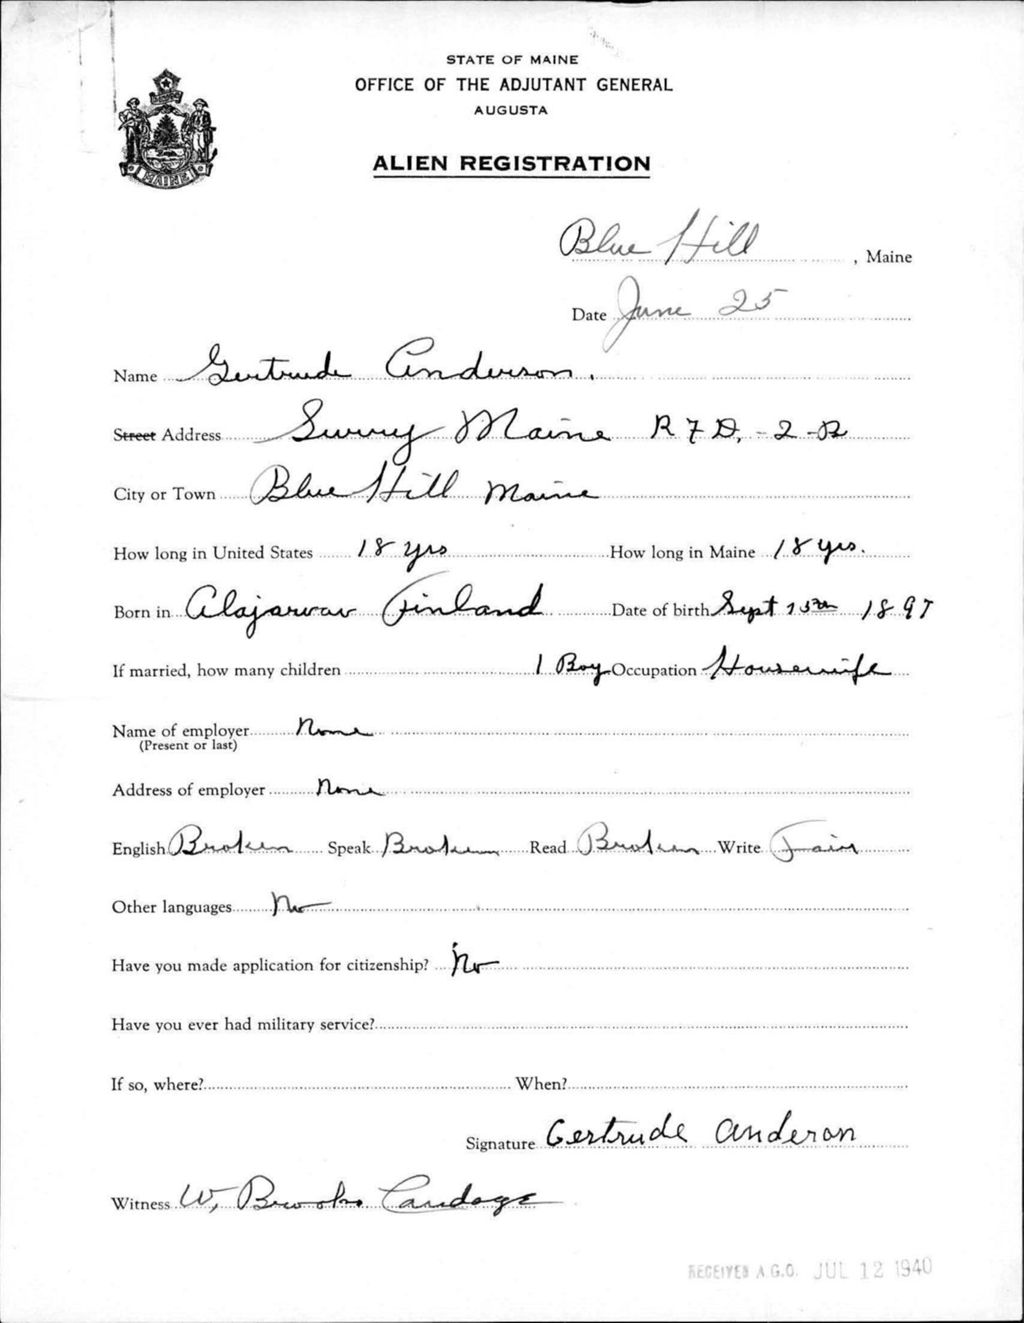 STATE OF MAINE
OFFICE OF THE ADJUTANT GENERAL
AUGUSTA
ALIEN REGISTRATION
MAINE
Blue Hill, Maine
Date June 25
Name Gertrude Anderson.
Street Address Surry Maine R F D. - 2 -
City or Town Blue Hill Maine
How long in United States 18 yrs How long in Maine 18 yrs.
Born in Alajarvav Finland Date of birth Sept 1897
If married, how many children 1 Boy Occupation Housewife
Name of employer None
(Present or last)
Address of employer None
English Broken Speak Broken Read Broken Write Fair
Other languages No
Have you made application for citizenship? No
Have you ever had military service?
If so, where? When?
Signature Gertrude Anderon
Witness W. Brooks Candage
RECEIVED A.G.O. JUL 12 1940